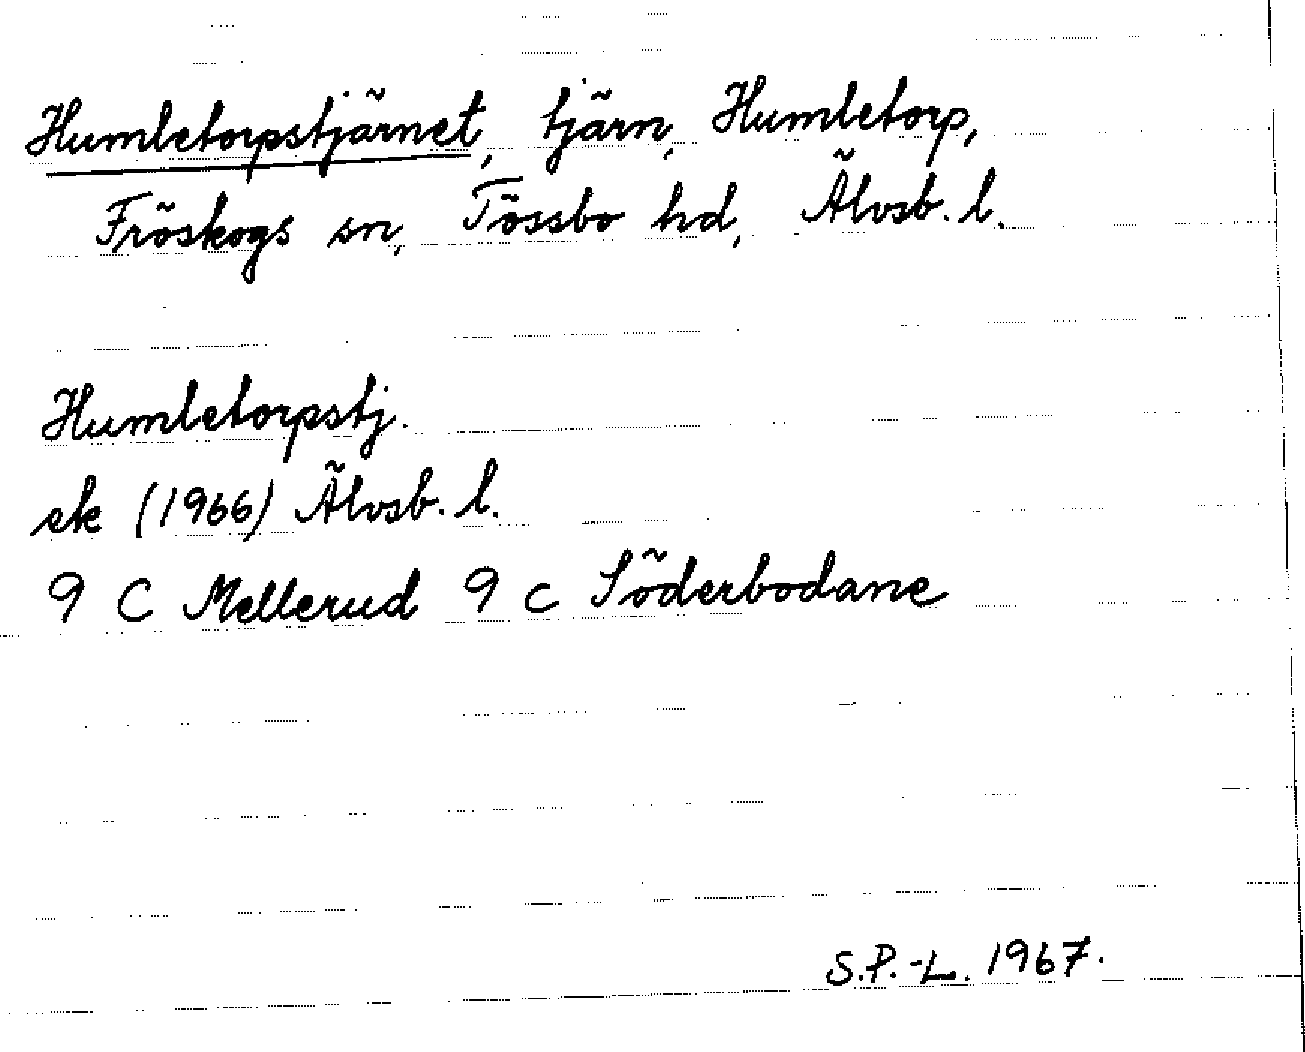 Humletorpstjärnet, tjärn, Humletorp,
Fröskogs sn, Tössbo hd, Älvsb. l.
Humletorpstj.
ek (1966) Älvsb. l.
9 C Mellerud 9 c Söderbodane
S.P.-L. 1967.